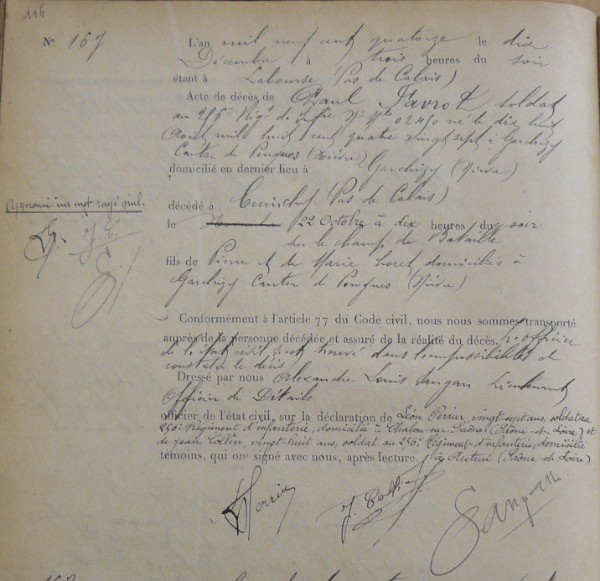 116
N° 167
L'an mil neuf cent quatorze le dix
Décembre à trois heures du soir
étant à Labourse (Pas de Calais)
Acte de décès de Paul Favrot soldat
au 256e Rég. d' Inf. né le dix huit
Août mil huit cent quatre vingt sept à Garchizy
Canton de Pougues (Nièvre)
domicilié en dernier lieu à Garchizy (Nièvre)
décédé à (Pas de Calais)
le 22 Octobre à dix heures du soir
sur le champ de Bataille
fils de Pierre et de Marie Loret, domiciliés à
Garchizy Canton de Pougues (Nièvre)
un mot rayé nul.
Conformément à l'article 77 du Code civil, nous nous sommes transporté
auprès de la personne décédée et assuré de la réalité du décès. l'officier
de l'état civil s'est trouvé dans l'impossibilité de
constater le décès
Dressé par nous Alexandre Louis Lieutenant
Officier de Détails
officier de l'état civil, sur la déclaration de Léon Perrier, vingt sept ans, soldat au
256e Régiment d'infanterie, domicilié à Chalon sur Saône (Saône et Loire) et
de Jean Collin, vingt huit ans, soldat au 256e Régiment d'infanterie, domicilié
témoins, qui ont signé avec nous, après lecture. à Autun (Saône et Loire)
J. Collin